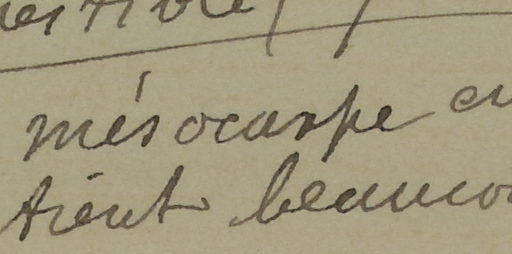 mésocarpe
tient beauco